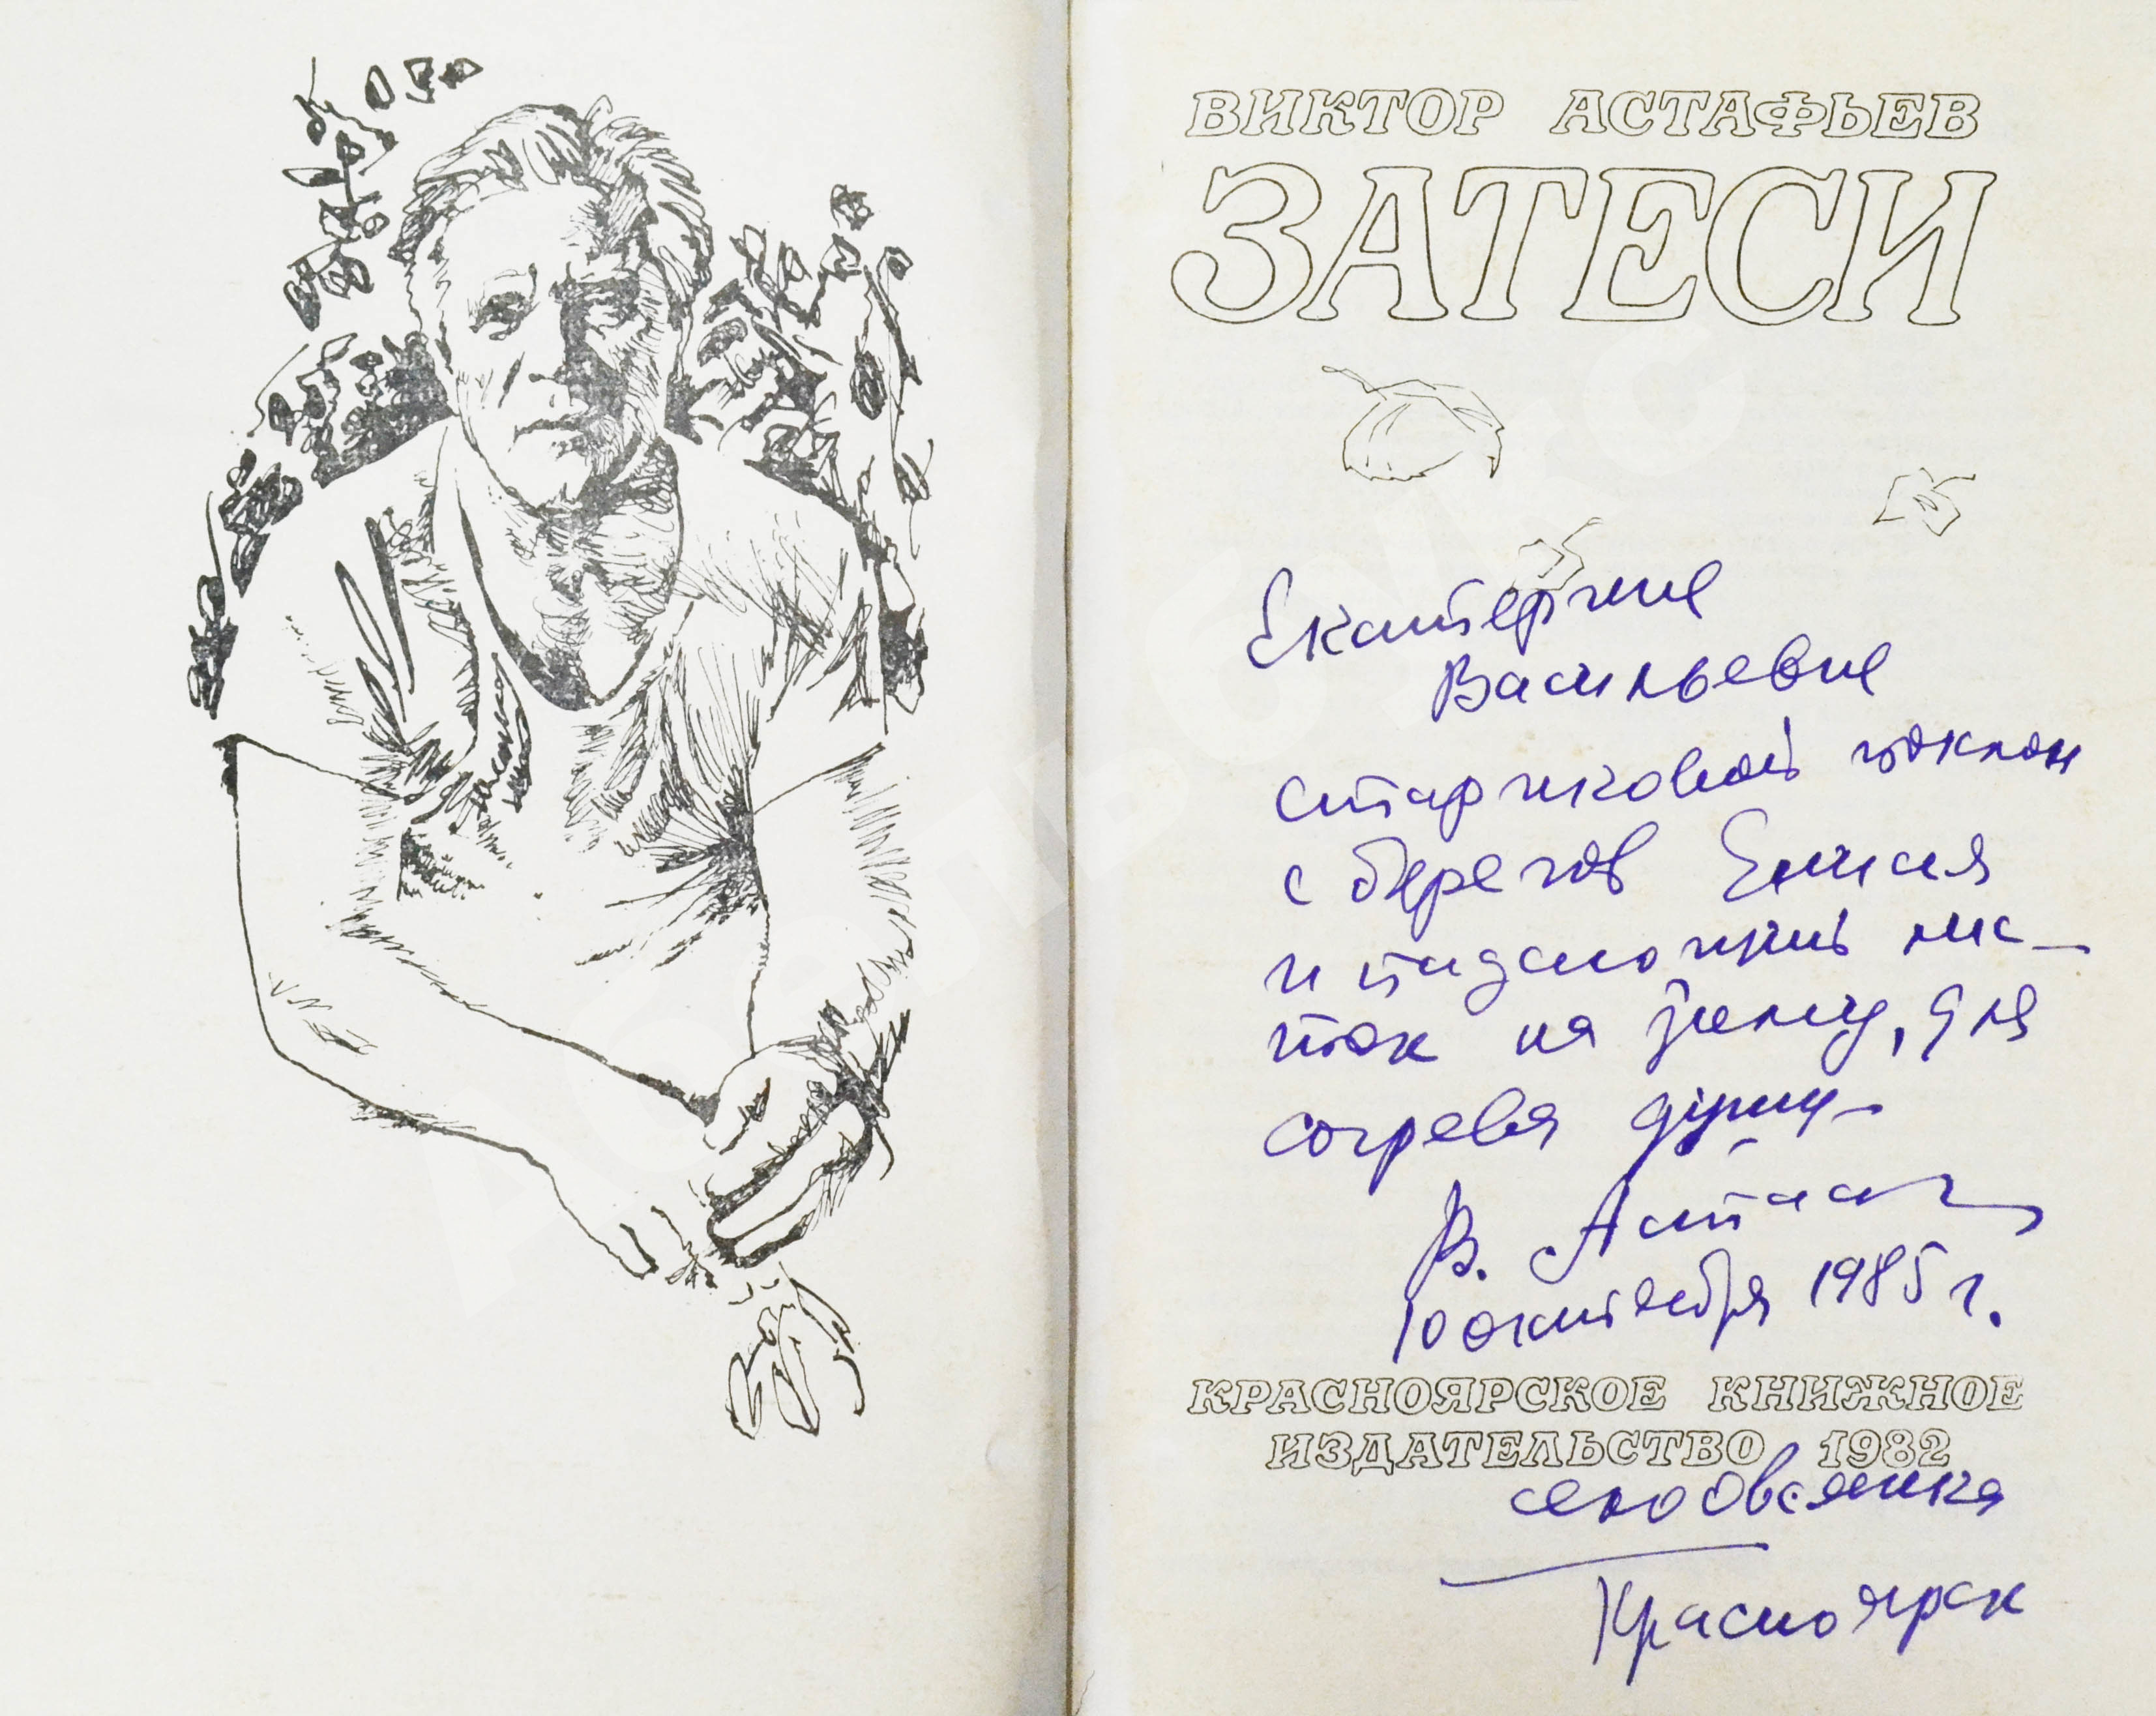 ВИКТОР АСТАФЬЕВ
ЗАТЕСИ
Екатерине
Васильевне
стариковский поклон
с берегов Енисея
и ли-
сток на зиму, для
согрева души
В. Астаф
10 октября 1985 г.
КРАСНОЯРСКОЕ КНИЖНОЕ
ИЗДАТЕЛЬСТВО 1982
село Овсянка
Красноярск